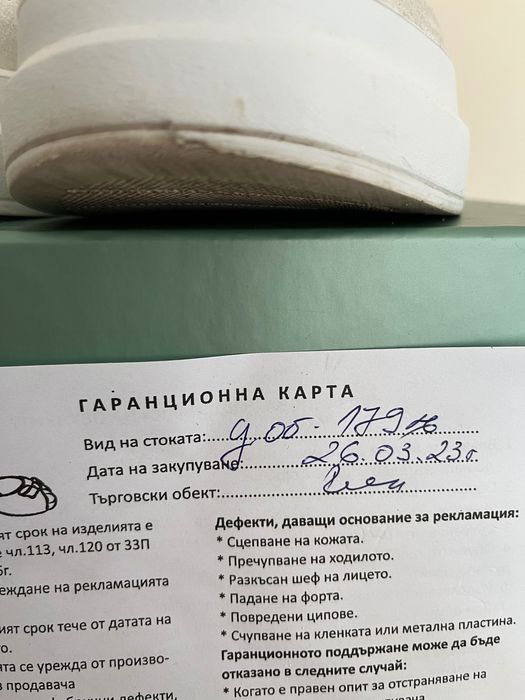 ГАРАНЦИОННА КАРТА
Вид на стоката: д. об. 179
Дата на закупуване: 26.03.23г.
Търговски обект:
ят срок на изделията е
чл.113, чл.120 от ЗЗП
г.
еждане на рекламацията
ият срок тече от датата на
о.
ята се урежда от произво-
продавача
дефекти,
Дефекти, даващи основание за рекламация:
* Сцепване на кожата.
* Пречупване на ходилото.
* Разкъсан шеф на лицето.
* Падане на форта.
* Повредени ципове.
* Счупване на кленката или метална пластина.
Гаранционното поддържане може да бъде
отказано в следните случай:
* Когато е правен опит за отстраняване на